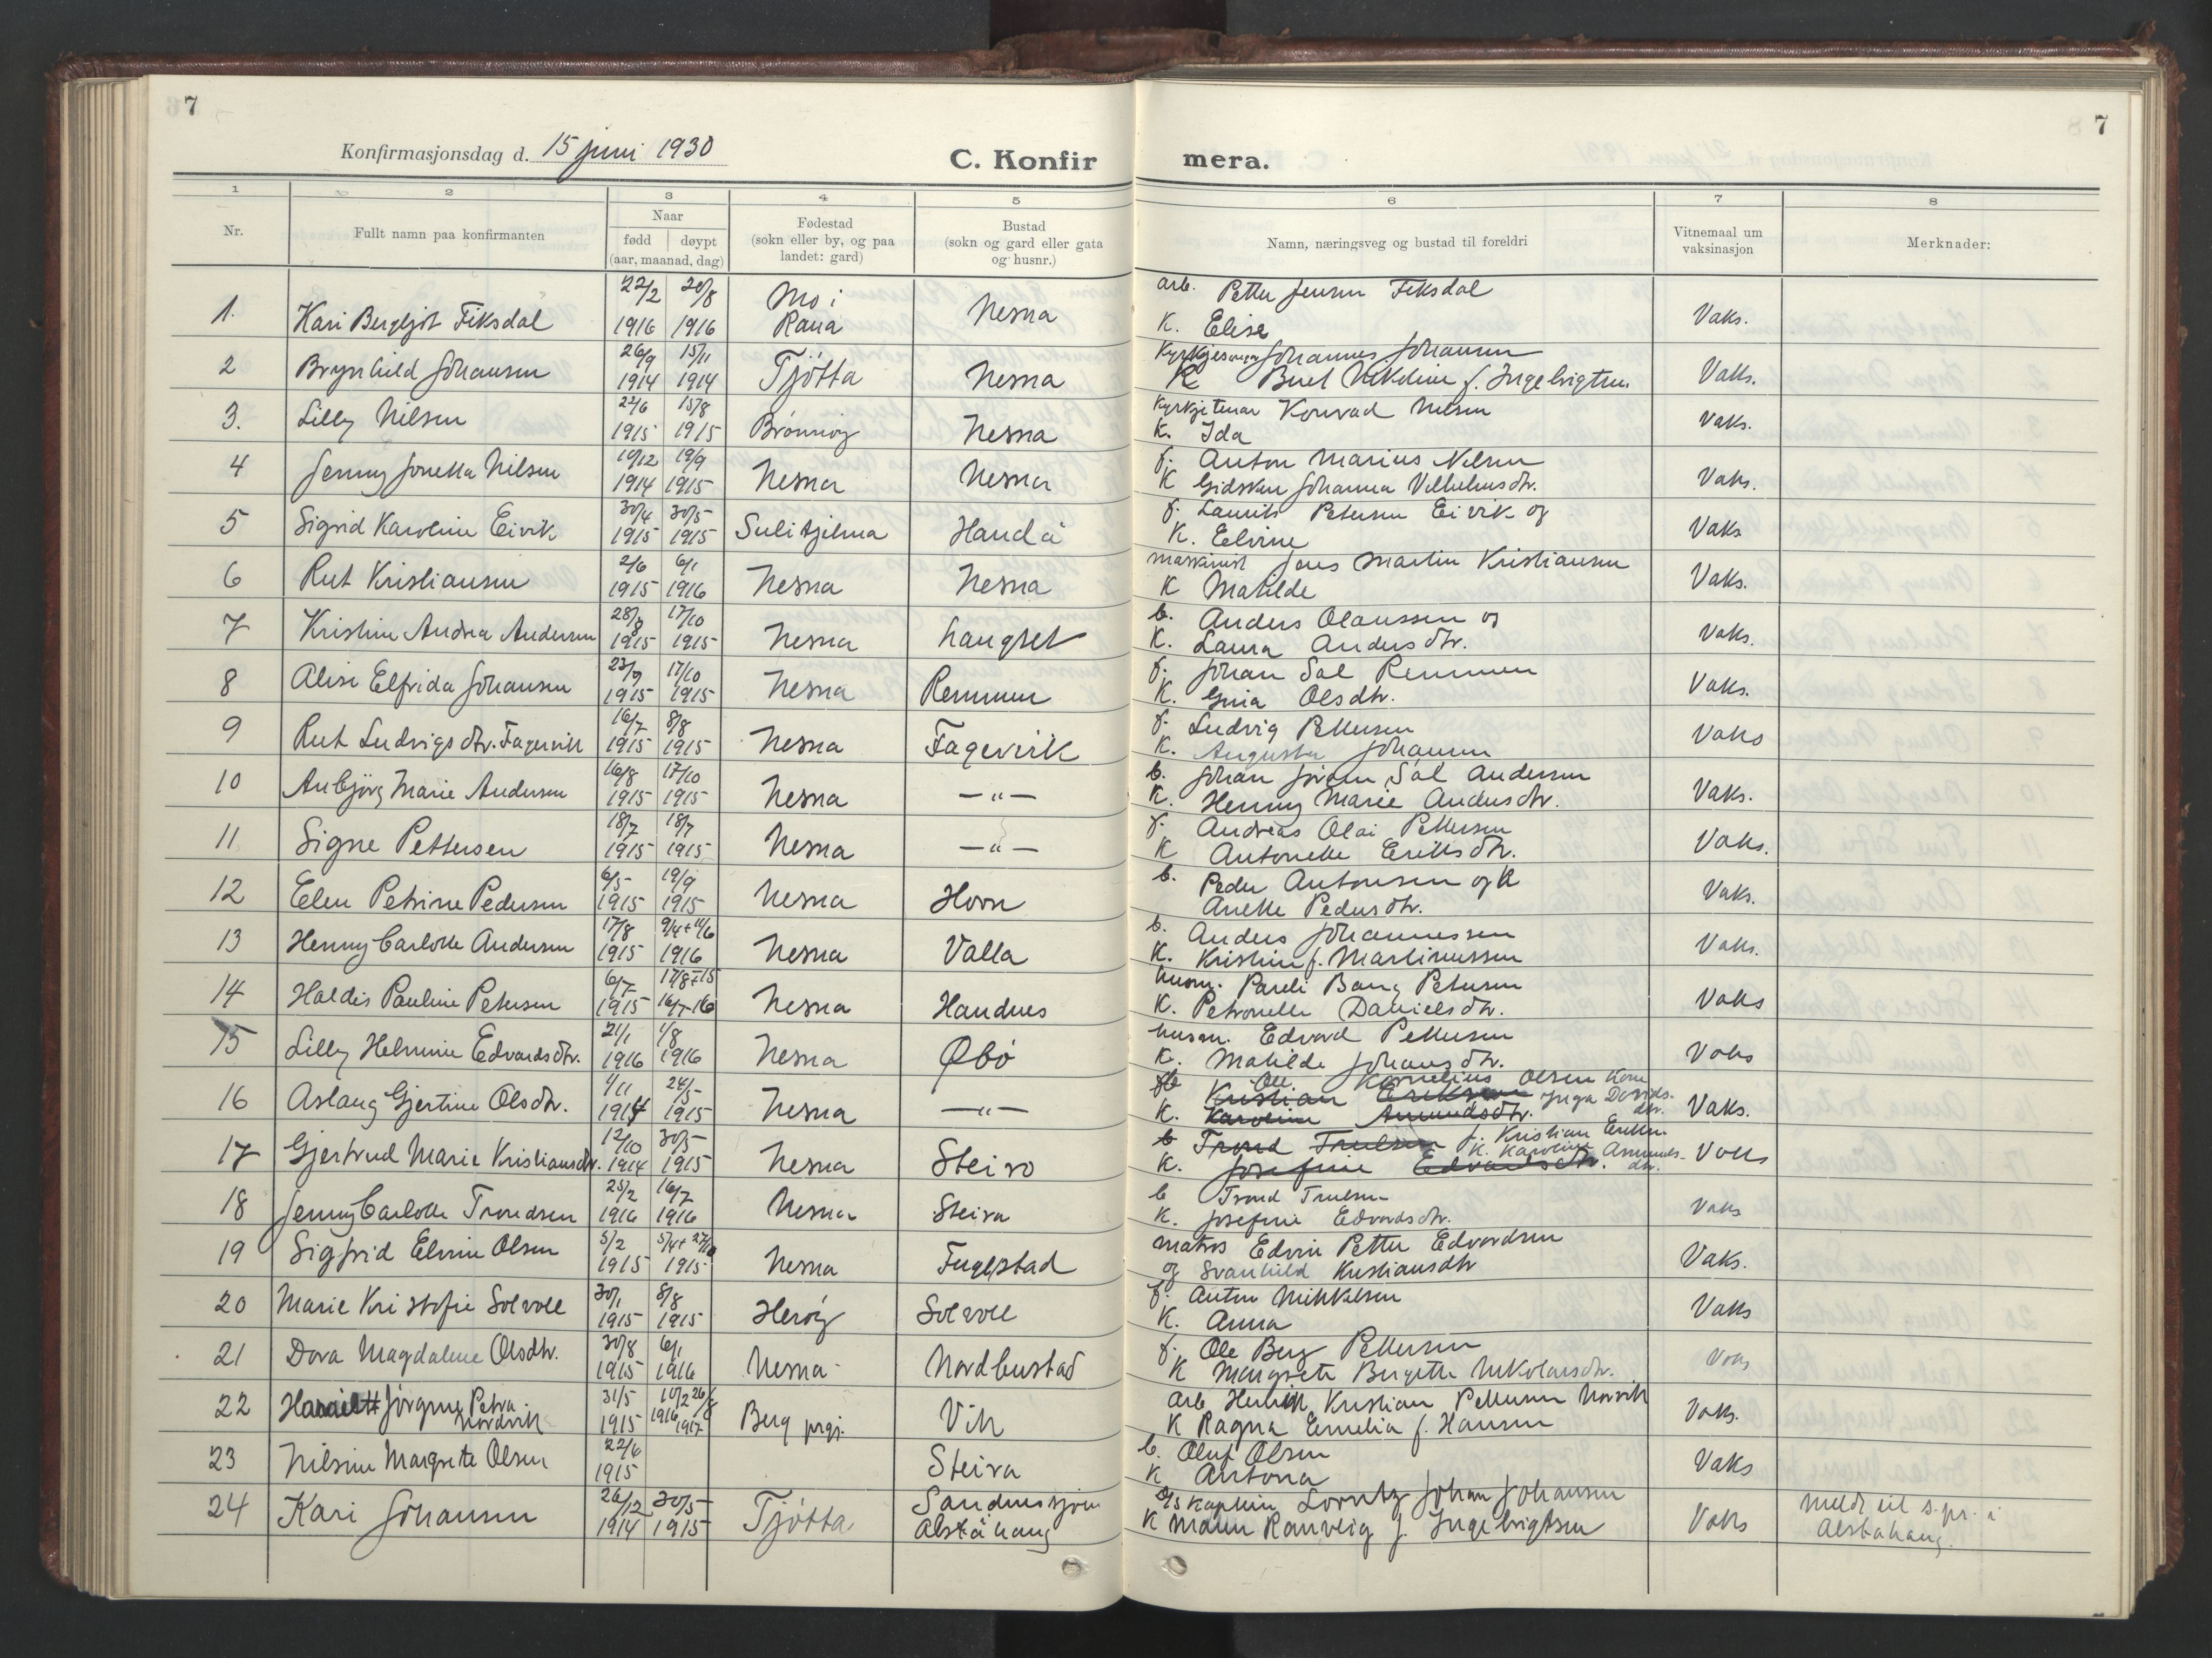 7
Konfirmasjonsdag d. 15 juni 1930
C. Konfir mera.
7
1 2 3 4 5 6 7 8
Nr.
Fullt namn paa konfirmanten
Naar
fødd døypt
(aar, maanad, dag)
Fødestad
(sokn eller by, og paa
landet: gard)
Bustad
(sokn og gard eller gata
og husnr.)
Namn, næringsveg og bustad til foreldri
Vitnemaal um
vaksinasjon
Merknader:
1. Kari Bergljot Fiksdal 22/2 1916 20/8 1916 Mo i Rana Nesna arb. Petter Jensen Fiksdal
K. Elise Vaks.
2 Brynhild Johansen 26/9 1914 15/11 1914 Tjøtta Nesna Johannes Johansen
K f. Ingebrigtsen Vaks.
3. Lilly Nilsen 22/6 1915 15/8 1915 Brønnøy Nesna Kyrkjetenar Konrad Nilsen
K. Ida Vaks.
4 Jenny Jonetta Nilsen 10/12 1914 19/9 1915 Nesna Nesna f. Anton Marius Nilsen
K Gidsken Johanna Vilhelmsdtr. Vaks.
5 Sigrid Karoline Eivik 30/4 1915 30/5 1915 Sulitjelma Handå f. Laurits Petersen Eivik og
K. Elvine Vaks
6 Rut Kristiansen 2/6 1915 6/1 1916 Nesna Nesna maskinist Jens Martin Kristiansen
K Matilde Vaks.
7 Kristine Andrea Andersen 28/8 1915 17/10 1915 Nesna Langset b. Anders Olaussen og
K. Laura Andersdtr. Vaks.
8 Alise Elfrida Johansen 23/9 1915 17/10 1915 Nesna Remmen f. Johan Sal Remmen
K. Gina Olsdtr. Vaks.
9 Rut Ludvigsdtr. Fagervik 16/7 1915 8/8 1915 Nesna Fagervik f. Ludvig Pettersen
K. Augusta Johansen Vaks
10 Anbjørg Marie Andersen 16/8 1915 17/10 1915 Nesna —"— b. Johan Jørgen Sal Andersen
K. Henny Marie Andersdtr. Vaks.
11 Signe Pettersen 18/7 1915 18/7 1915 Nesna —"— f. Andreas Olai Pettersen
K Antonette Eriksdtr. Vaks.
12 Elen Petrine Pedersen 6/5 1915 19/9 1915 Nesna Horn b. Peder Antonsen og K
Anette Pedersdtr. Vaks.
13 Henny Carlotte Andersen 17/8 1915 9/4 + 11/6 1916 Nesna Valla b. Anders Johannessen
K. Kristine f. Martinussen Vaks.
14 Haldis Pauline Petersen 6/7 1915 17/8-15 16/7-16 Nesna Handnes husm. Pareli Bang Petersen
K. Petronelle Danielsdtr. Vaks
15 Lilly Helmine Edvardsdtr. 21/1 1916 1/8 1916 Nesna Øbø husm. Edvard Pettersen
K. Matilde Johansdtr. Vaks
16 Aslaug Gjertine Olsdtr. 1/11 1914 24/5 1915 Nesna —"— Ole Kornelius Olsen Kone
Kristian Eriksen Inga Davids-
K. Karoline Amundsdtr. dtr. Vaks.
17 Gjertrud Marie Kristiansdtr. 12/10 1914 30/5 1915 Nesna Steiro b Trond Trulsen f. Kristian Eriksen
K. Karoline Asmunds-
K. Josefine Edvardsdtr. dtr. Vaks
18 Jenny Carlotte Trondsen 25/2 1916 16/7 1916 Nesna Steira b Trond Trulsen
K. Josefine Edvardsdtr. Vaks
19 Sigfrid Elvine Olsen 5/2 1915 5/4 + 27/10 1915 Nesna Fugelstad matros Edvin Petter Edvardsen
og Svanhild Kristiansdtr Vaks.
20 Marie Kristofie Solvoll 30/1 1915 8/8 1915 Herøy Solvoll f. Anton Mikkelsen
K. Anna Vaks
21 Dora Magdalene Olsdtr. 30/8 1915 6/1 1916 Nesna Nordbustad f. Ole Berg Pettersen
K Margrete Bergitte Nikolaisdtr. Vaks
22 Haraiett Jørgine Petra Nordvik 31/5 1915 10/2 1916 26/8 1917 Berg prgj. Vik Arb Kristian Pettersen Norvik
K Ragna Emelia f. Hansen Vaks.
23 Nilsine Margrete Olsen 22/6 1915 Steira b. Oluf Olsen
K Antona Vaks
24 Kari Johansen 26/12 1914 30/5 1915 Tjøtta Sandnessjøen
Alstahaug Lorntz Johan Johansen
K Ranveig f. Ingebrigtsen Vaks Meldt til s.pr. i
Alstahaug.